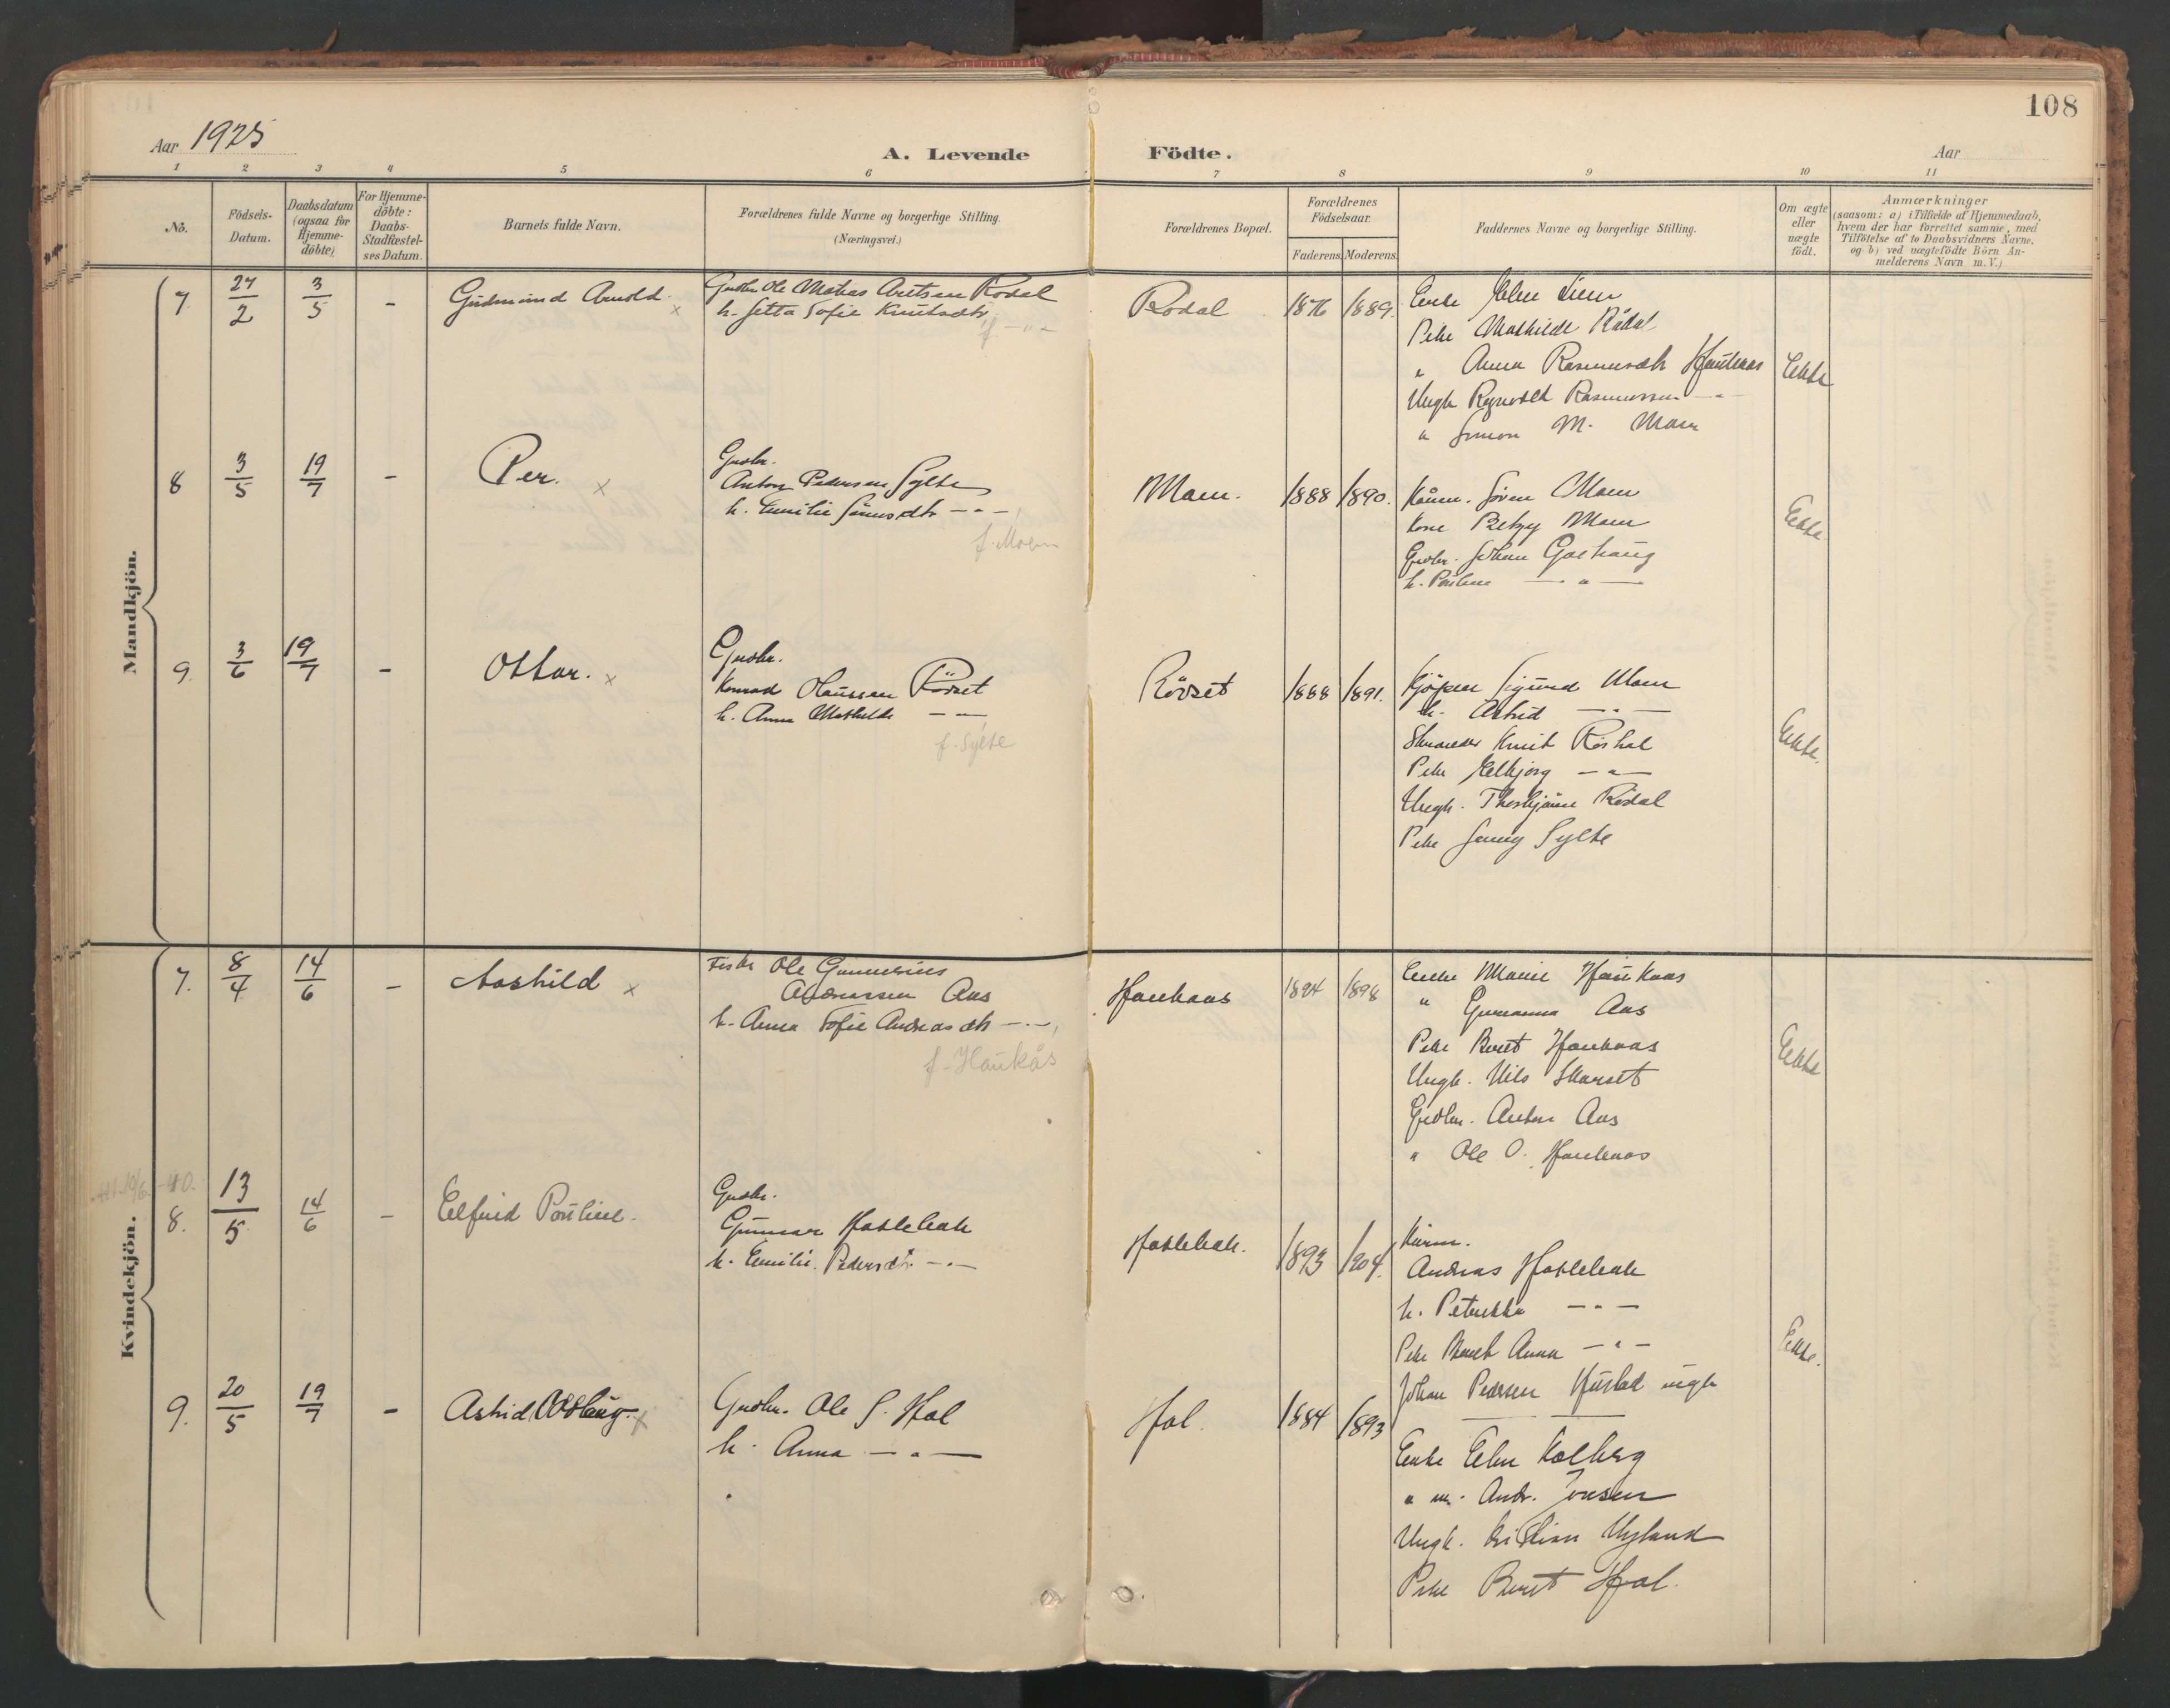 108
Aar 1925
A. Levende Födte.
Aar
1 2 3 4 5 6 7 8 9 10 11
No.
Födsels-Datum.
Daabsdatum (ogsaa for Hjemme-döbte)
For Hjemme-döbte: Daabs-Stadfæstel-ses Datum.
Barnets fulde Navn.
Forældrenes fulde Navne og borgerlige Stilling.
(Næringsvei.)
Forældrenes Bopæl.
Forældrenes Födselsaar.
Faderens. Moderens.
Faddernes Navne og borgerlige Stilling.
Om ægte eller uægte födt.
Anmærkninger
(saasom: a) i Tilfælde af Hjemmedaab,
hvem der har forrettet samme, med
Tilföielse af to Daabsvidners Navne,
og b) ved uægtefödte Börn An-
melderens Navn m. V.)
Mandkjön.
7. 27/2 3/5 - Gudmund Arnold. x
Gudbr. Ole Matias Rödal
h. Jetta Sofie Knutsdtr
f - " -
Rödal 1876 1889.
Enke Elen
Pike Mathilde Rådal
" Anna Rasmusdtr Haukaas
Ungk Rasmussen - " -
" Simon M. Maen
Ekte
8 3/5 19/7 - Per. x
Gudbr.
Anton Pedersen Sylte
h. Emilie - " -
f. Moen
Maen. 1888 1890.
Sören Maen
Kone Betzy Maen
Gudbr. Johan Gaustaug
h. Pauline - " -
Ekte
9. 3/6 19/7 - Ottar. x
Gudbr.
Konrad Hanssen Rödset
h. Anna Mathilde - " -
f. Sylte
Rövset 1888 1891.
Kjöpm Sigurd Maen
h. Astrid - " -
Skrædder Knut
Pike Eelbjorg - " -
Ungk. Thorbjörn Rödal
Pike Jenny Sylte
Ekte.
Kvindekjön.
7. 8/4 14/6 - Aashild x
Fisker Ole Gunnerius
Andreassen Aas
h. Anna Sofie Andreasdtr - " -
f. Haukås
Haukaas 1894 1898
Enke Marie Haukaas
" Gurianna Aas
Pike Beret Haukaas
Ungk. Nils Skarset
Gudbr. Anton Aas
" Ole O. Haukaas
Ekte
8. 13/5 14/6 - Elfrid Pauline.
Gudbr.
Gunnar Haslebak
h. Emilie Pedersdtr. - " -
Haslebak. 1893 1904.
Andreas Haslebak
h. Petrikka - " -
Pike Beret Anna - " -
Johan Pedersen Hustad ungk
Ekte.
9. 20/5 19/7 - Astrid Oddlaug. x
Gudbr. Ole S. Hol
h. Anna - " -
Hol. 1884 1893
Enke Elen Kolberg
" m. Andr. Jensen
Ungk. Kristian Nyland
Pike Beret Hol.